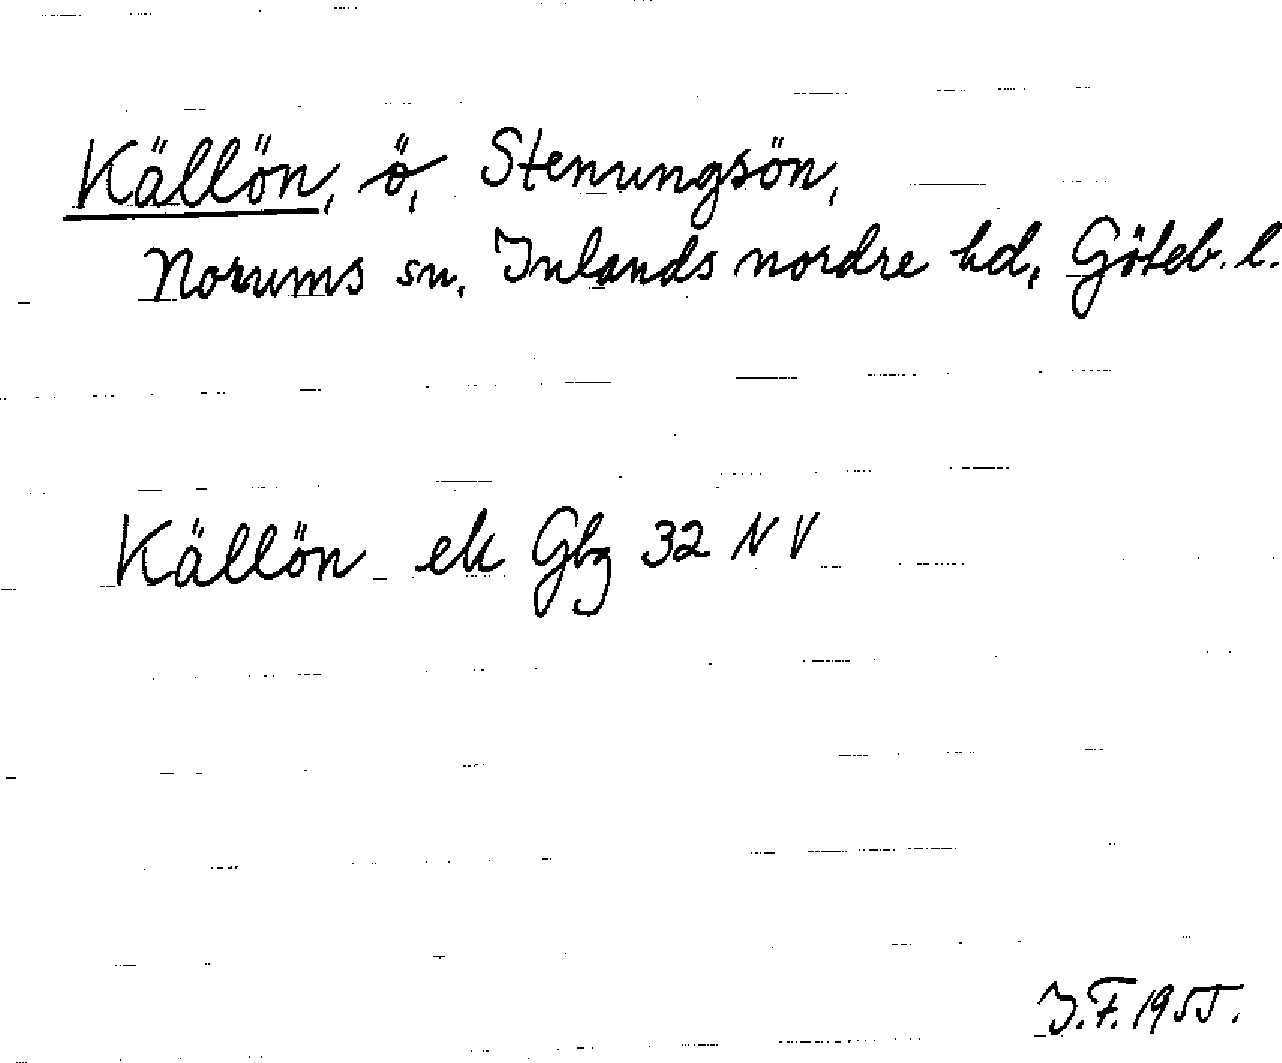 Källön, ö, Stenungsön,
Norums sn, Inlands nordre hd, Göteb. l.
Källön ek Gbg 32 NV
I.F. 1955.